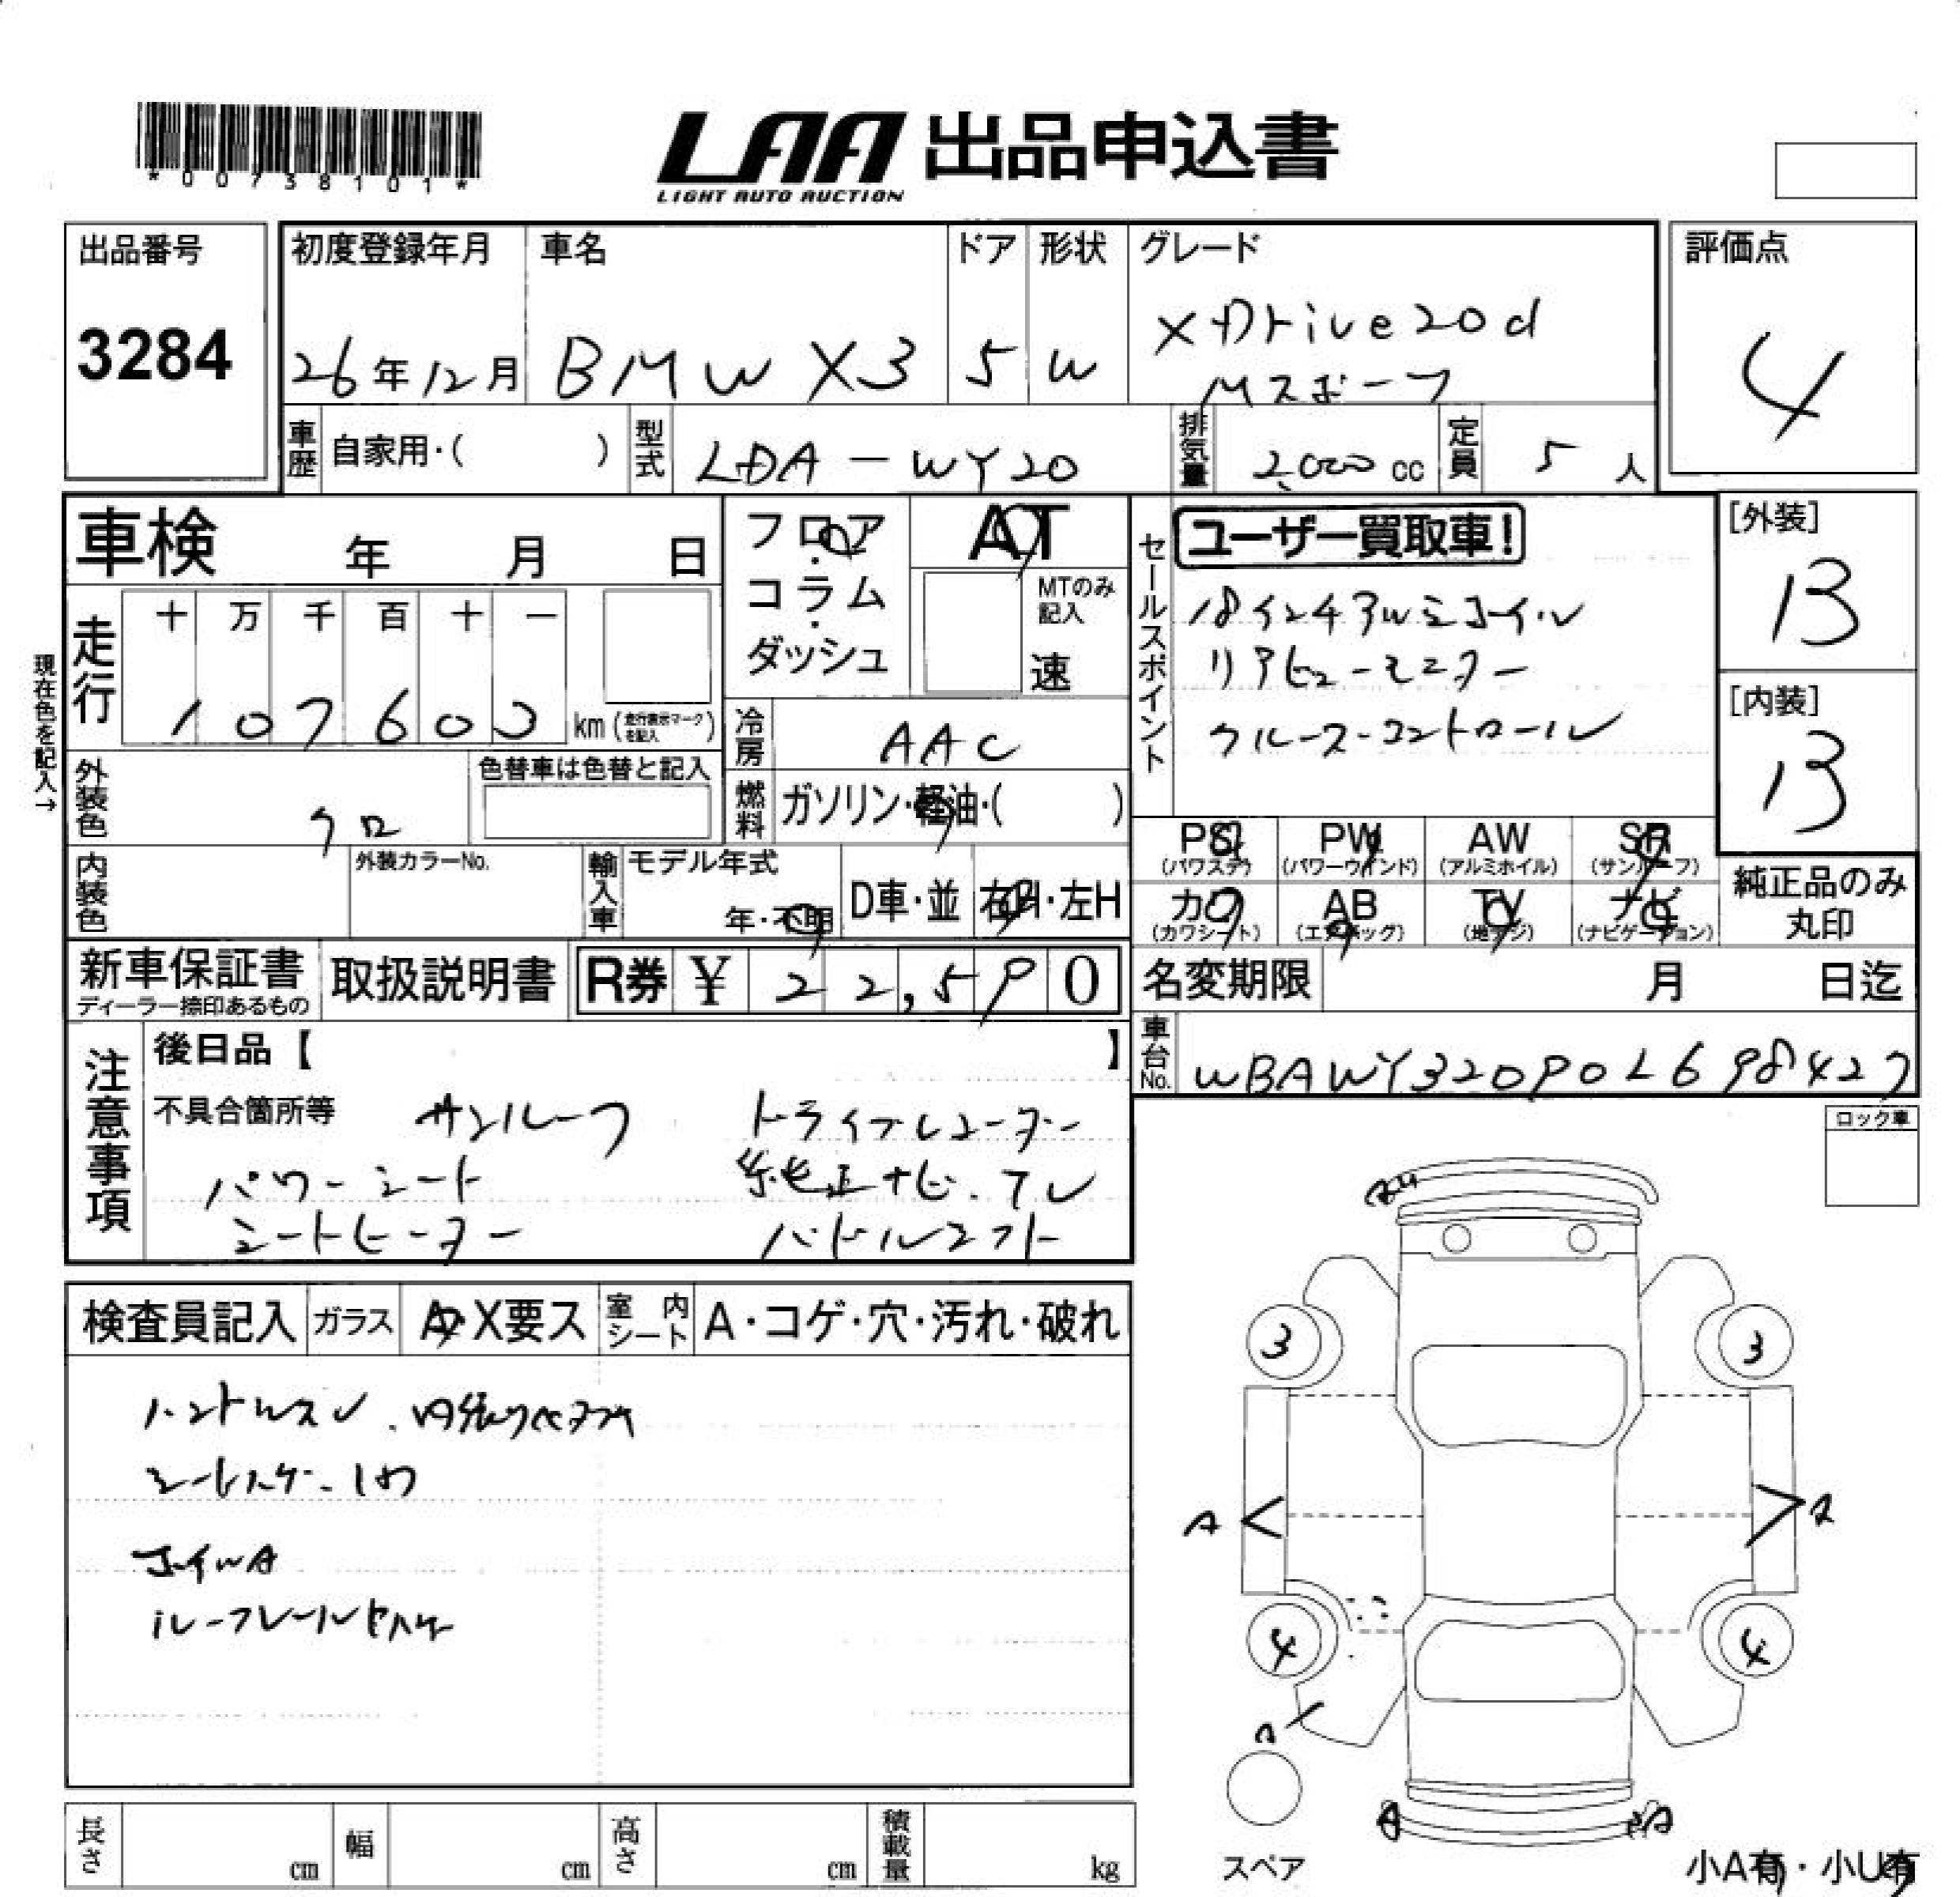 *00738101*
LAA 出品申込書
LIGHT AUTO AUCTION
出品番号
3284
初度登録年月
26年12月
車名
BMW X3
ドア
5
形状
W
グレード
XDrive20d
Mスポーツ
評価点
4
車歴 自家用・( )
型式 LDA-WY20
排気量 2,000 cc
定員 5 人
車検 年 月 日
フロア・コラム・ダッシュ
AT
MTのみ記入
速
セールスポイント
ユーザー買取車!
18インチアルミホイル
リアビューモニター
クルーズコントロール
[外装]
B
[内装]
B
現在色を記入→
走行
十 万 千 百 十 一
107600 km (走行表示マークを記入)
冷房 AAC
外装色 クロ
色替車は色替と記入
燃料 ガソリン・軽油・( )
内装色
外装カラーNo.
輸入車 モデル年式
年・不明
D車・並 右H・左H
PS (パワステ)
PW (パワーウインド)
AW (アルミホイル)
SR (サンルーフ)
カワ (カワシート)
AB (エアバッグ)
TV (地デジ)
ナビ (ナビゲーション)
純正品のみ
丸印
新車保証書
ディーラー捺印あるもの
取扱説明書
R券 ¥ 22,590
名変期限 月 日迄
車台No. WBAWY32090L698427
注意事項
後日品【 】
不具合箇所等 サンルーフ ドライブレコーダー
パワーシート 純正ナビ.テレ
シートヒーター パドルシフト
ロック車
検査員記入 ガラス A・X要ス 室内シート A・コゲ・穴・汚れ・破れ
ハンドルスレ
ホイルA
ルーフレール
3 3
A
4 4
A
スペア
小A有・小U有
長さ cm 幅 cm 高さ cm 積載量 kg